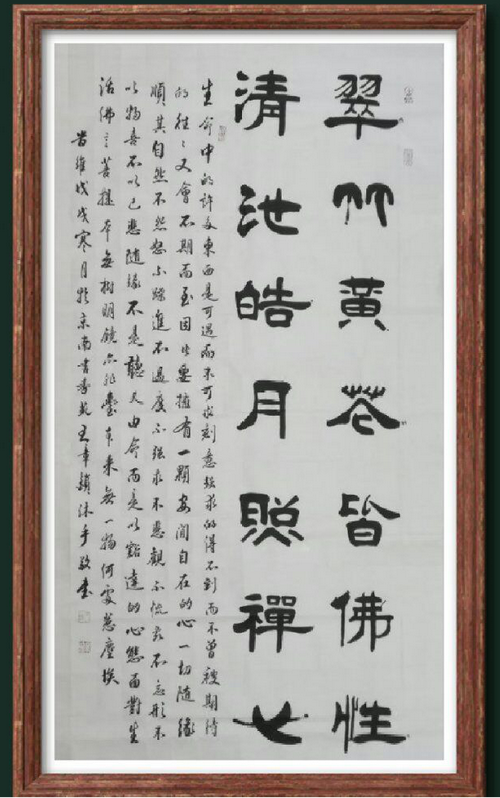 翠竹黃花皆佛性
清池皓月照禪心
生命中的許多東西是可遇而不可求刻意强求的得不到而不曾被期待
的往〻又會不期而至因此要擁有一顆安閒自在的心一切隨緣
順其自然不怨怒不躁進不過度不强求不悲觀不慌亂不忘形不
以物喜不以己悲隨緣不是聽天由命而是以豁達的心態面對生
活佛云菩提本無樹明鏡亦非臺本來無一物何處惹塵埃
歲維戊戌寒月於京南書香苑王章鎖沐手敬書